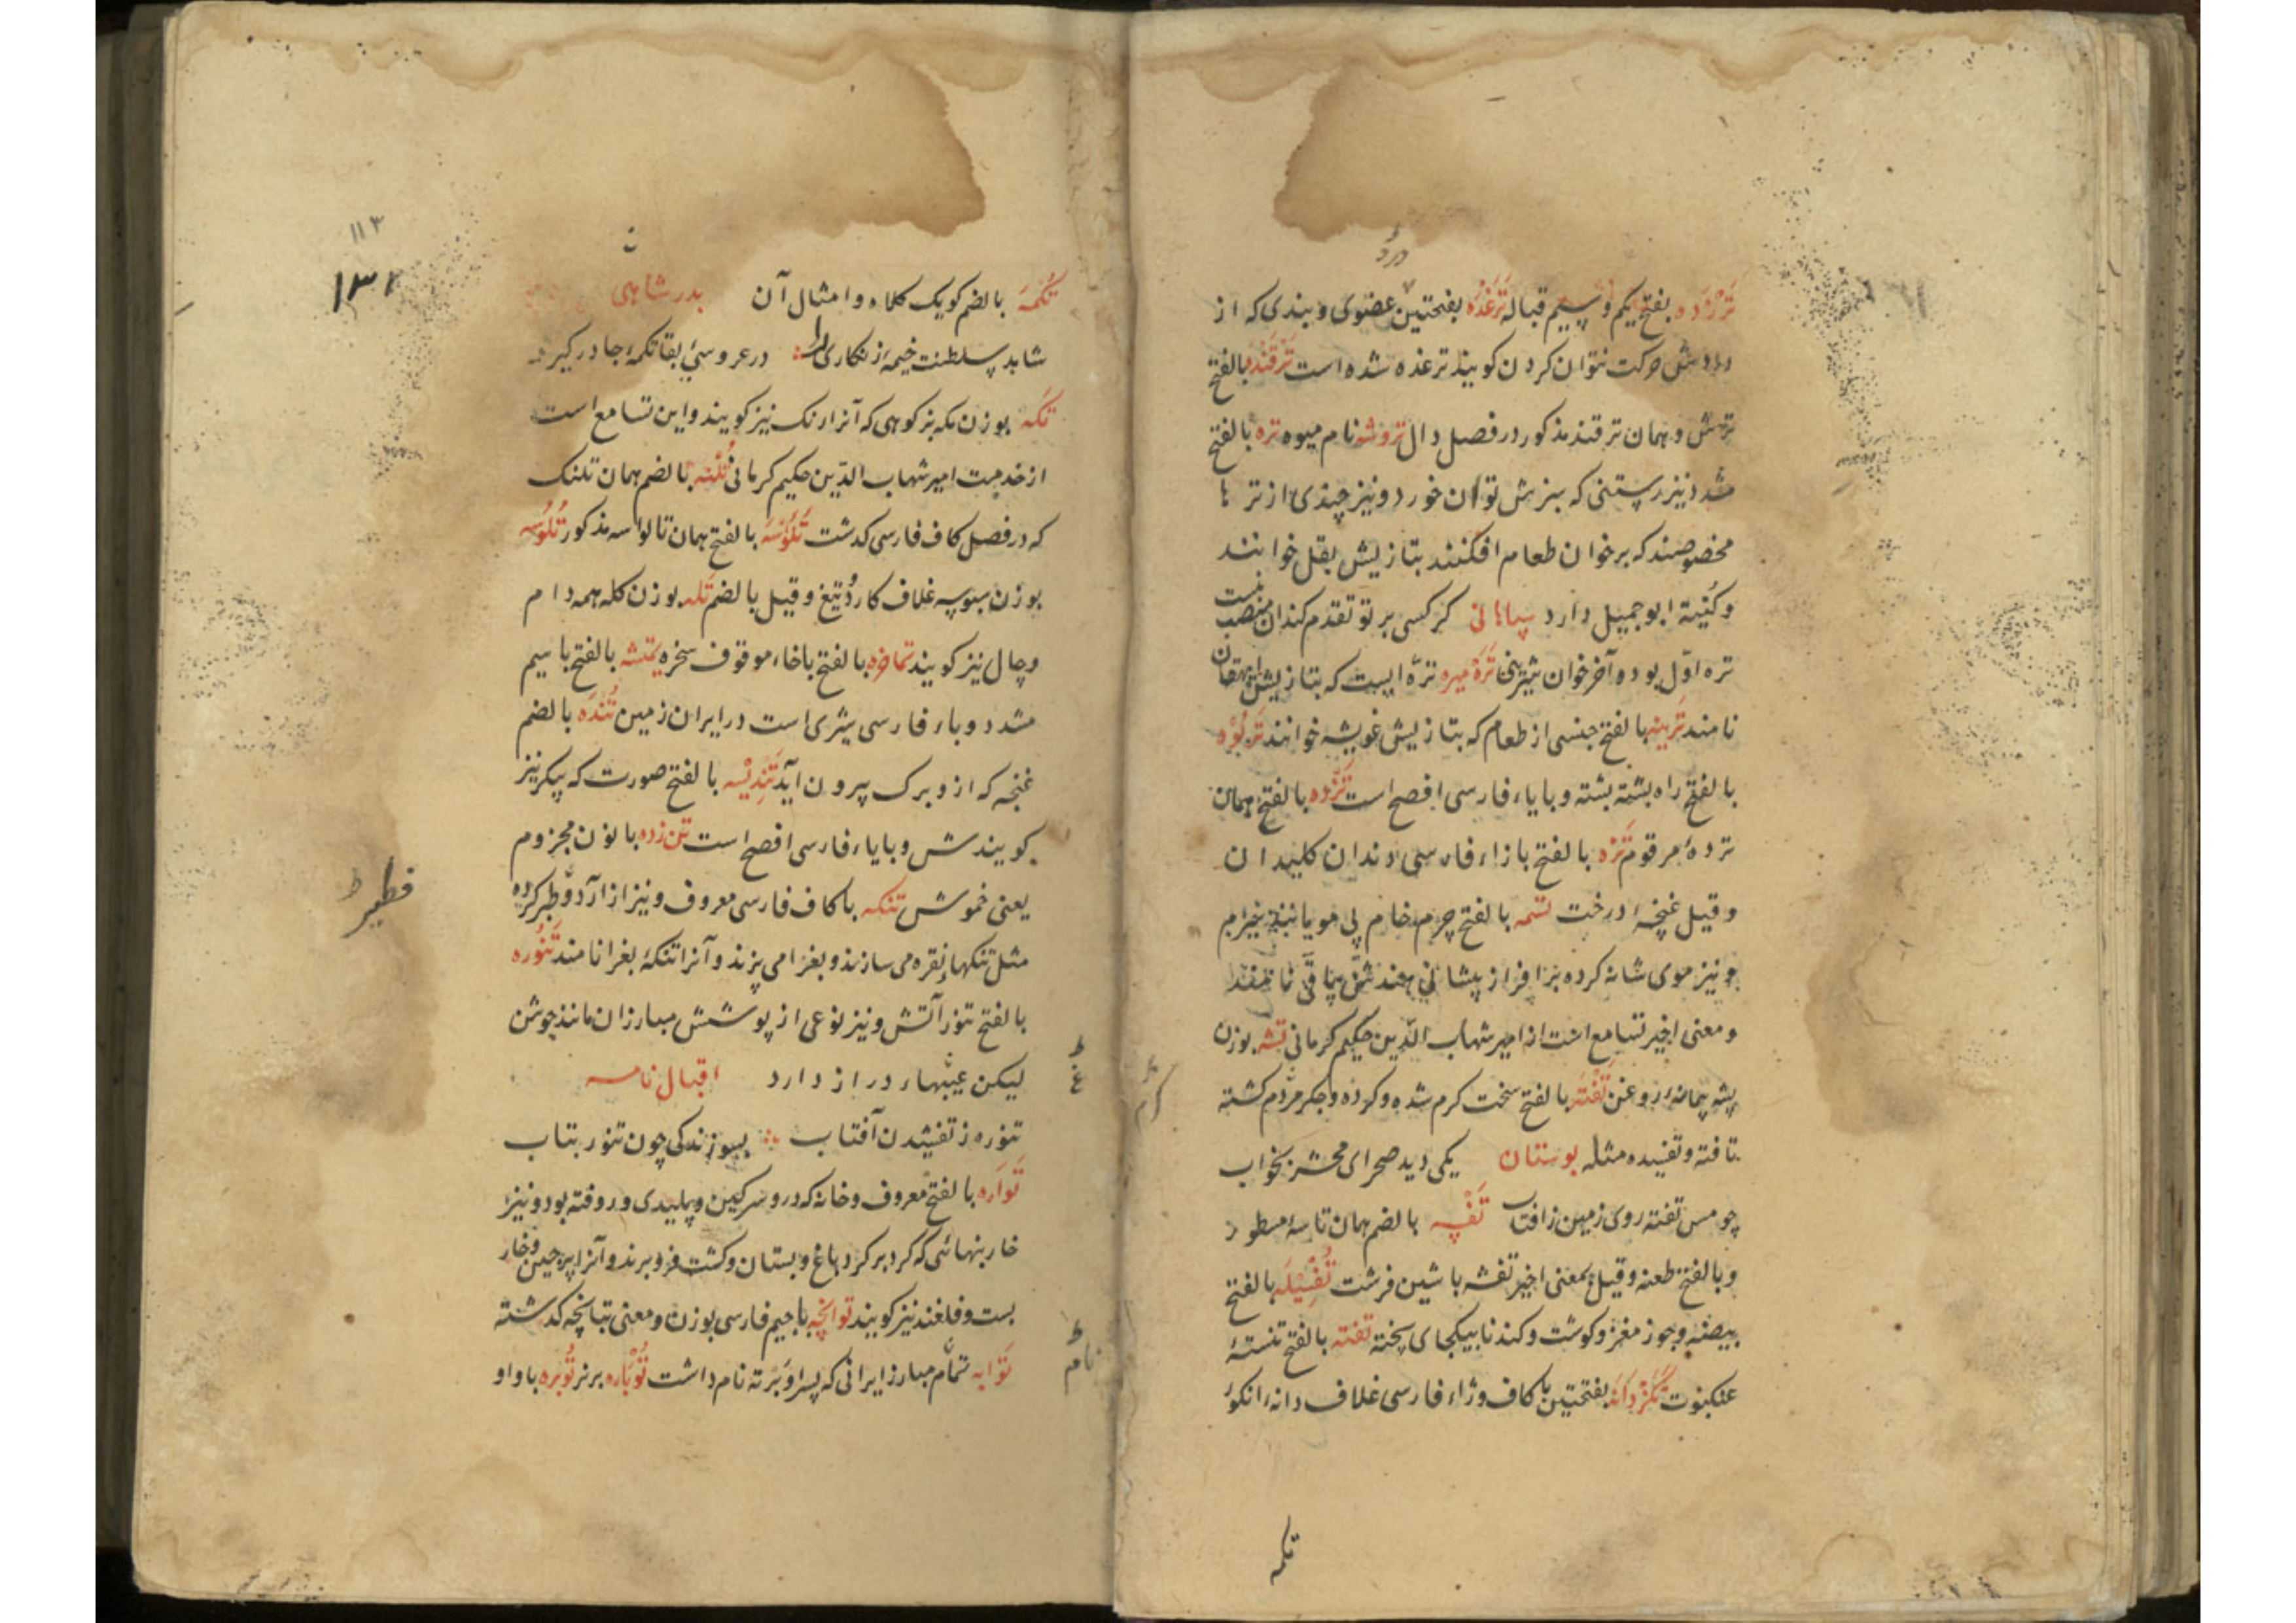 درد
تَرْزَده بفتح یکم و سیم قباله تَرَغْدَه بفتحتین عضوی و بندی که از
دردش حرکت نتوان کردن کویند ترغده شده است تَرْفَند بالفتح
و همان ترقند مذکور در فصل دال تروشه نام میوه تره بالفتح
مشدد نیز رستنی که سبزش توان خورد و نیز چندی از تر ها
مخصوصند که بر خوان طعام افکنند بتازیش بقل خوانند
و کُنیة ابو جمیل دارد سپاهانی کر کسی بر تو تقدم کند آن منصب نیست
تره اوّل بود و آخر خوان شیرینی تَرَه میره ترّه ایست که بتازیش ایهقان
نامند تَرینه بالفتح جنسی از طعام که بتازیش غویثه خوانند تریُوْه
بالفتح راه پشته پشته و بایاء فارسی افصح است تَژْده بالفتح همان
ترده مرقوم تَژه بالفتح بازاء فارسی دندان کلیدان
و قیل غنچهٔ درخت تسمه بالفتح چرم خام بی مو یا
و نیز موی شانه کرده برافراز پیشانی نهند
و معنی اخیر تسامع است از امیر شهاب الدّین حکیم کرمانی تشه بوزن
پشه پیمانهٔ روغن تَفْته بالفتح سخت کرم شده و کرده و جکر مردم کشته
تافته و تفسیده مثله بوستان یکی دید صحرای محشر بخواب
چو مس تفته روی زمین ز آفتاب تُفْسِه بالضم همان تاسهٔ مسطور
و بالفتح طعنه و قیل بمعنی اخیر تفشه باشین قرشت تَفْشِیْلَه بالفتح
بیضه و جوز مغز و کوشت و کندنا بیکجای پخته تفنه بالفتح تنستهٔ
عنکبوت تَکَژدانه بفتحتین با کاف و ژاء فارسی غلاف دانهٔ انکور
تکمه
۱۱۳
۱۳۲
تُکْمَه بالضم کویک کلاه و امثال آن بدر شاهی
شاید سلطنت خیمهٔ زنکاری را در عروسیٔ بقا تکمهٔ چادر کیرد
تَکه بوزن مکه بز کوهی که آنرا رنک نیز کویند و این تسامع است
از خدمت امیر شهاب الدّین حکیم کرمانی تُلُنه بالضم همان تلنک
که در فصل کاف فارسی کذشت تَلَوْسَه بالفتح همان تالواسه مذکور تَلُوسه
بوزن سبوسه غلاف کارد و تیغ و قیل بالضم تله بوزن کله همه دام
و چال نیز کویند تماخره بالفتح باخاء موقوف سخره تمشه بالفتح با سیم
مشدد و باء فارسی شهری است در ایران زمین تُندَه بالضم
غنچه که ازو برک بیرون آید تَنْدِیْسه بالفتح صورت که پیکر نیز
کویندش و بایاء فارسی افصح است تن زده بانون مجزوم
یعنی خموش تنکه باکاف فارسی معروف و نیز از آرد
مثل تنکهاء نقره می سازند و بغرا می پزند و آنرا تنکهٔ بغرا نامند تَنُوره
بالفتح تنور آتش و نیز نوعی از پوشش مبارزان مانند جوشن
لیکن غیبهاء دراز دارد اقبال نامه
تنوره ز تفتیدن آفتاب بسوزندکی چون تنور بتاب
تَواره بالفتح معروف و خانه که درو سرکین و پلیدی و روفته بود و نیز
خار بنهائی که کرد بر کرد باغ و بستان و کشت فرو برند و آنرا پرچین و خار
بست و فلغند نیز کویند توانچه باجیم فارسی بوزن و معنی تبانچه کذشته
تَوابه تمام مبارز ایرانی که پسر او بَرْته نام داشت تُوْباره بر نر تُوبَره باواو
فطیر ط
ط
غ
ط
نام